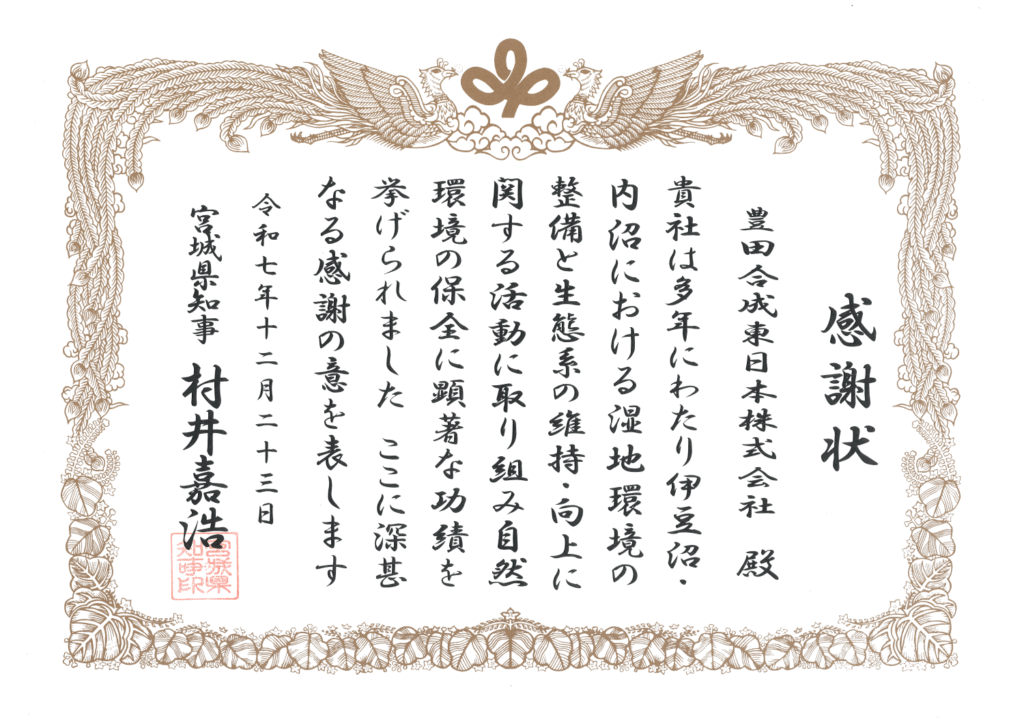 感謝状
豊田合成東日本株式会社 殿
貴社は多年にわたり伊豆沼・
内沼における湿地環境の
整備と生態系の維持・向上に
関する活動に取り組み自然
環境の保全に顕著な功績を
挙げられました ここに深甚
なる感謝の意を表します
令和七年十二月二十三日
宮城県知事 村井嘉浩
宮城県
知事印